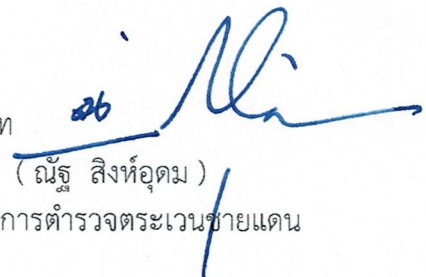 ท
( ณัฐ สิงห์อุดม )
การตำรวจตระเวนชายแดน